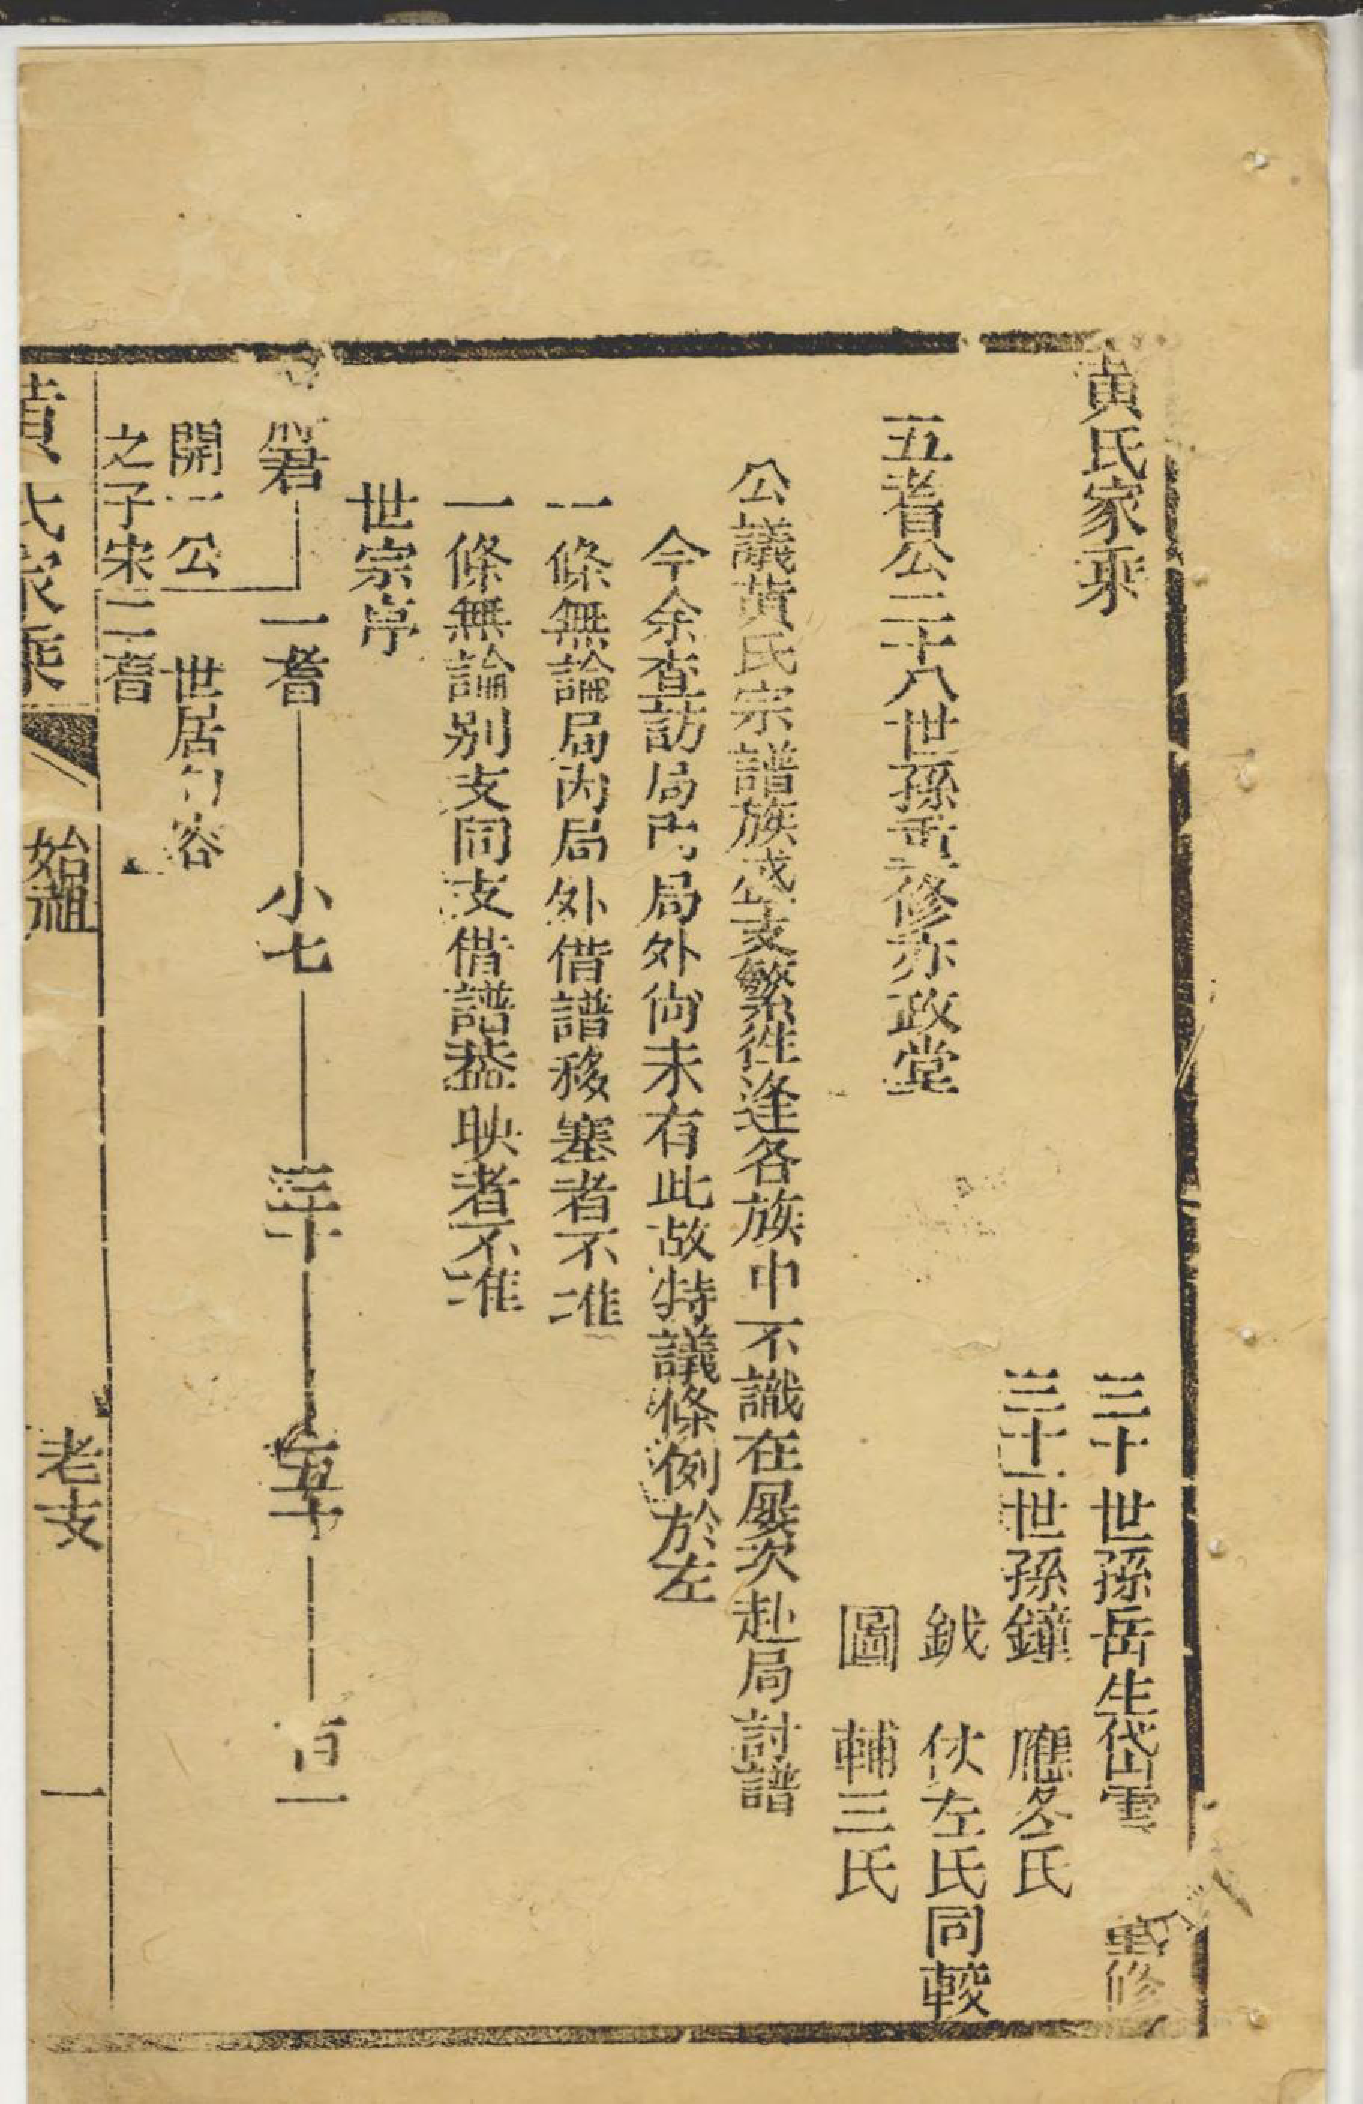 黃氏家乘
三十世孫岳生岱雲 重修
三十一世孫鐘 應冬氏
鉞 伏左氏同較
圖 輔三氏
五耆公二十八世孫重修亦政堂
公議黃氏宗譜族盛支繁往逢各族中不識在屡次赴局討譜
今余查訪局內局外尙未有此故特議條例於左
一條無論局內局外借譜移塞者不准
一條無論别支同支借譜 映者不准
世宗序
君 一耆 小七 三十 五十 百一
開一公 世居句容
之子宋二耆
黃氏家乘 始祖 老支 一